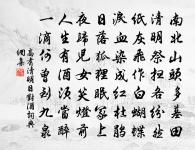 南北山頭多墓田
清明祭掃各紛然
紙灰飛作白蝴蝶
淚血染成紅杜鵑
日落狐狸眠冢上
夜歸兒女笑燈前
人生有酒須當醉
一滴何曾到九泉
高翥清明日對酒詞典
網集